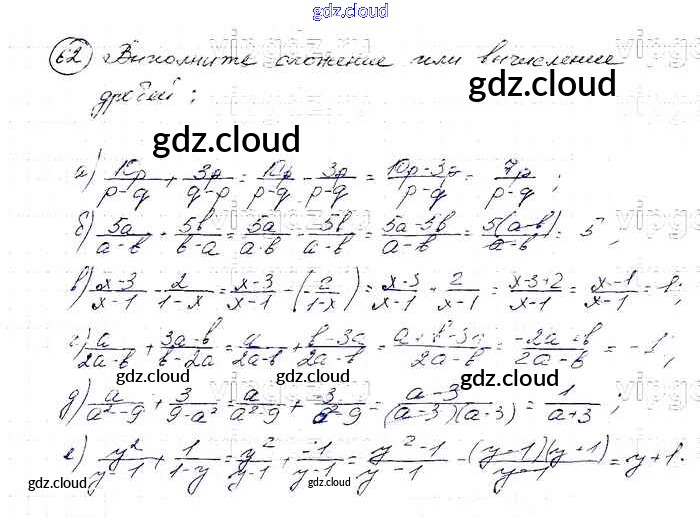 gdz.cloud
62 Выполните сложение или вычисление
дробей:
gdz.cloud gdz.cloud
а) 10p/(p-q) + 3p/(q-p) = 10p/(p-q) - 3p/(p-q) = (10p-3p)/(p-q) = 7p/(p-q);
б) 5a/(a-b) + 5b/(b-a) = 5a/(a-b) - 5b/(a-b) = (5a-5b)/(a-b) = 5(a-b)/(a-b) = 5;
в) (x-3)/(x-1) - 2/(1-x) = (x-3)/(x-1) - (2/(1-x)) = (x-3)/(x-1) + 2/(x-1) = (x-3+2)/(x-1) = (x-1)/(x-1) = 1;
г) a/(2a-b) + (3a-b)/(b-2a) = a/(2a-b) + (b-3a)/(2a-b) = (a+b-3a)/(2a-b) = (-2a+b)/(2a-b) = -1;
gdz.cloud gdz.cloud gdz.cloud
д) a/(a²-9) + 3/(9-a²) = a/(a²-9) + -3/(a²-9) = (a-3)/(a-3)(a-3) = 1/(a+3);
gdz.cloud gdz.cloud
е) y²/(y-1) + 1/(1-y) = y²/(y-1) + -1/(y-1) = (y²-1)/(y-1) = (y-1)(y+1)/(y-1) = y+1.
gdz.cloud gdz.cloud gdz.cloud